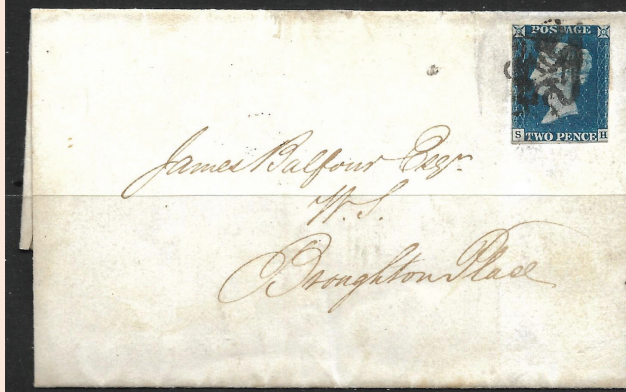 POSTAGE
S TWO PENCE H
James Balfour Esqr.
W.S.
Broughton Place